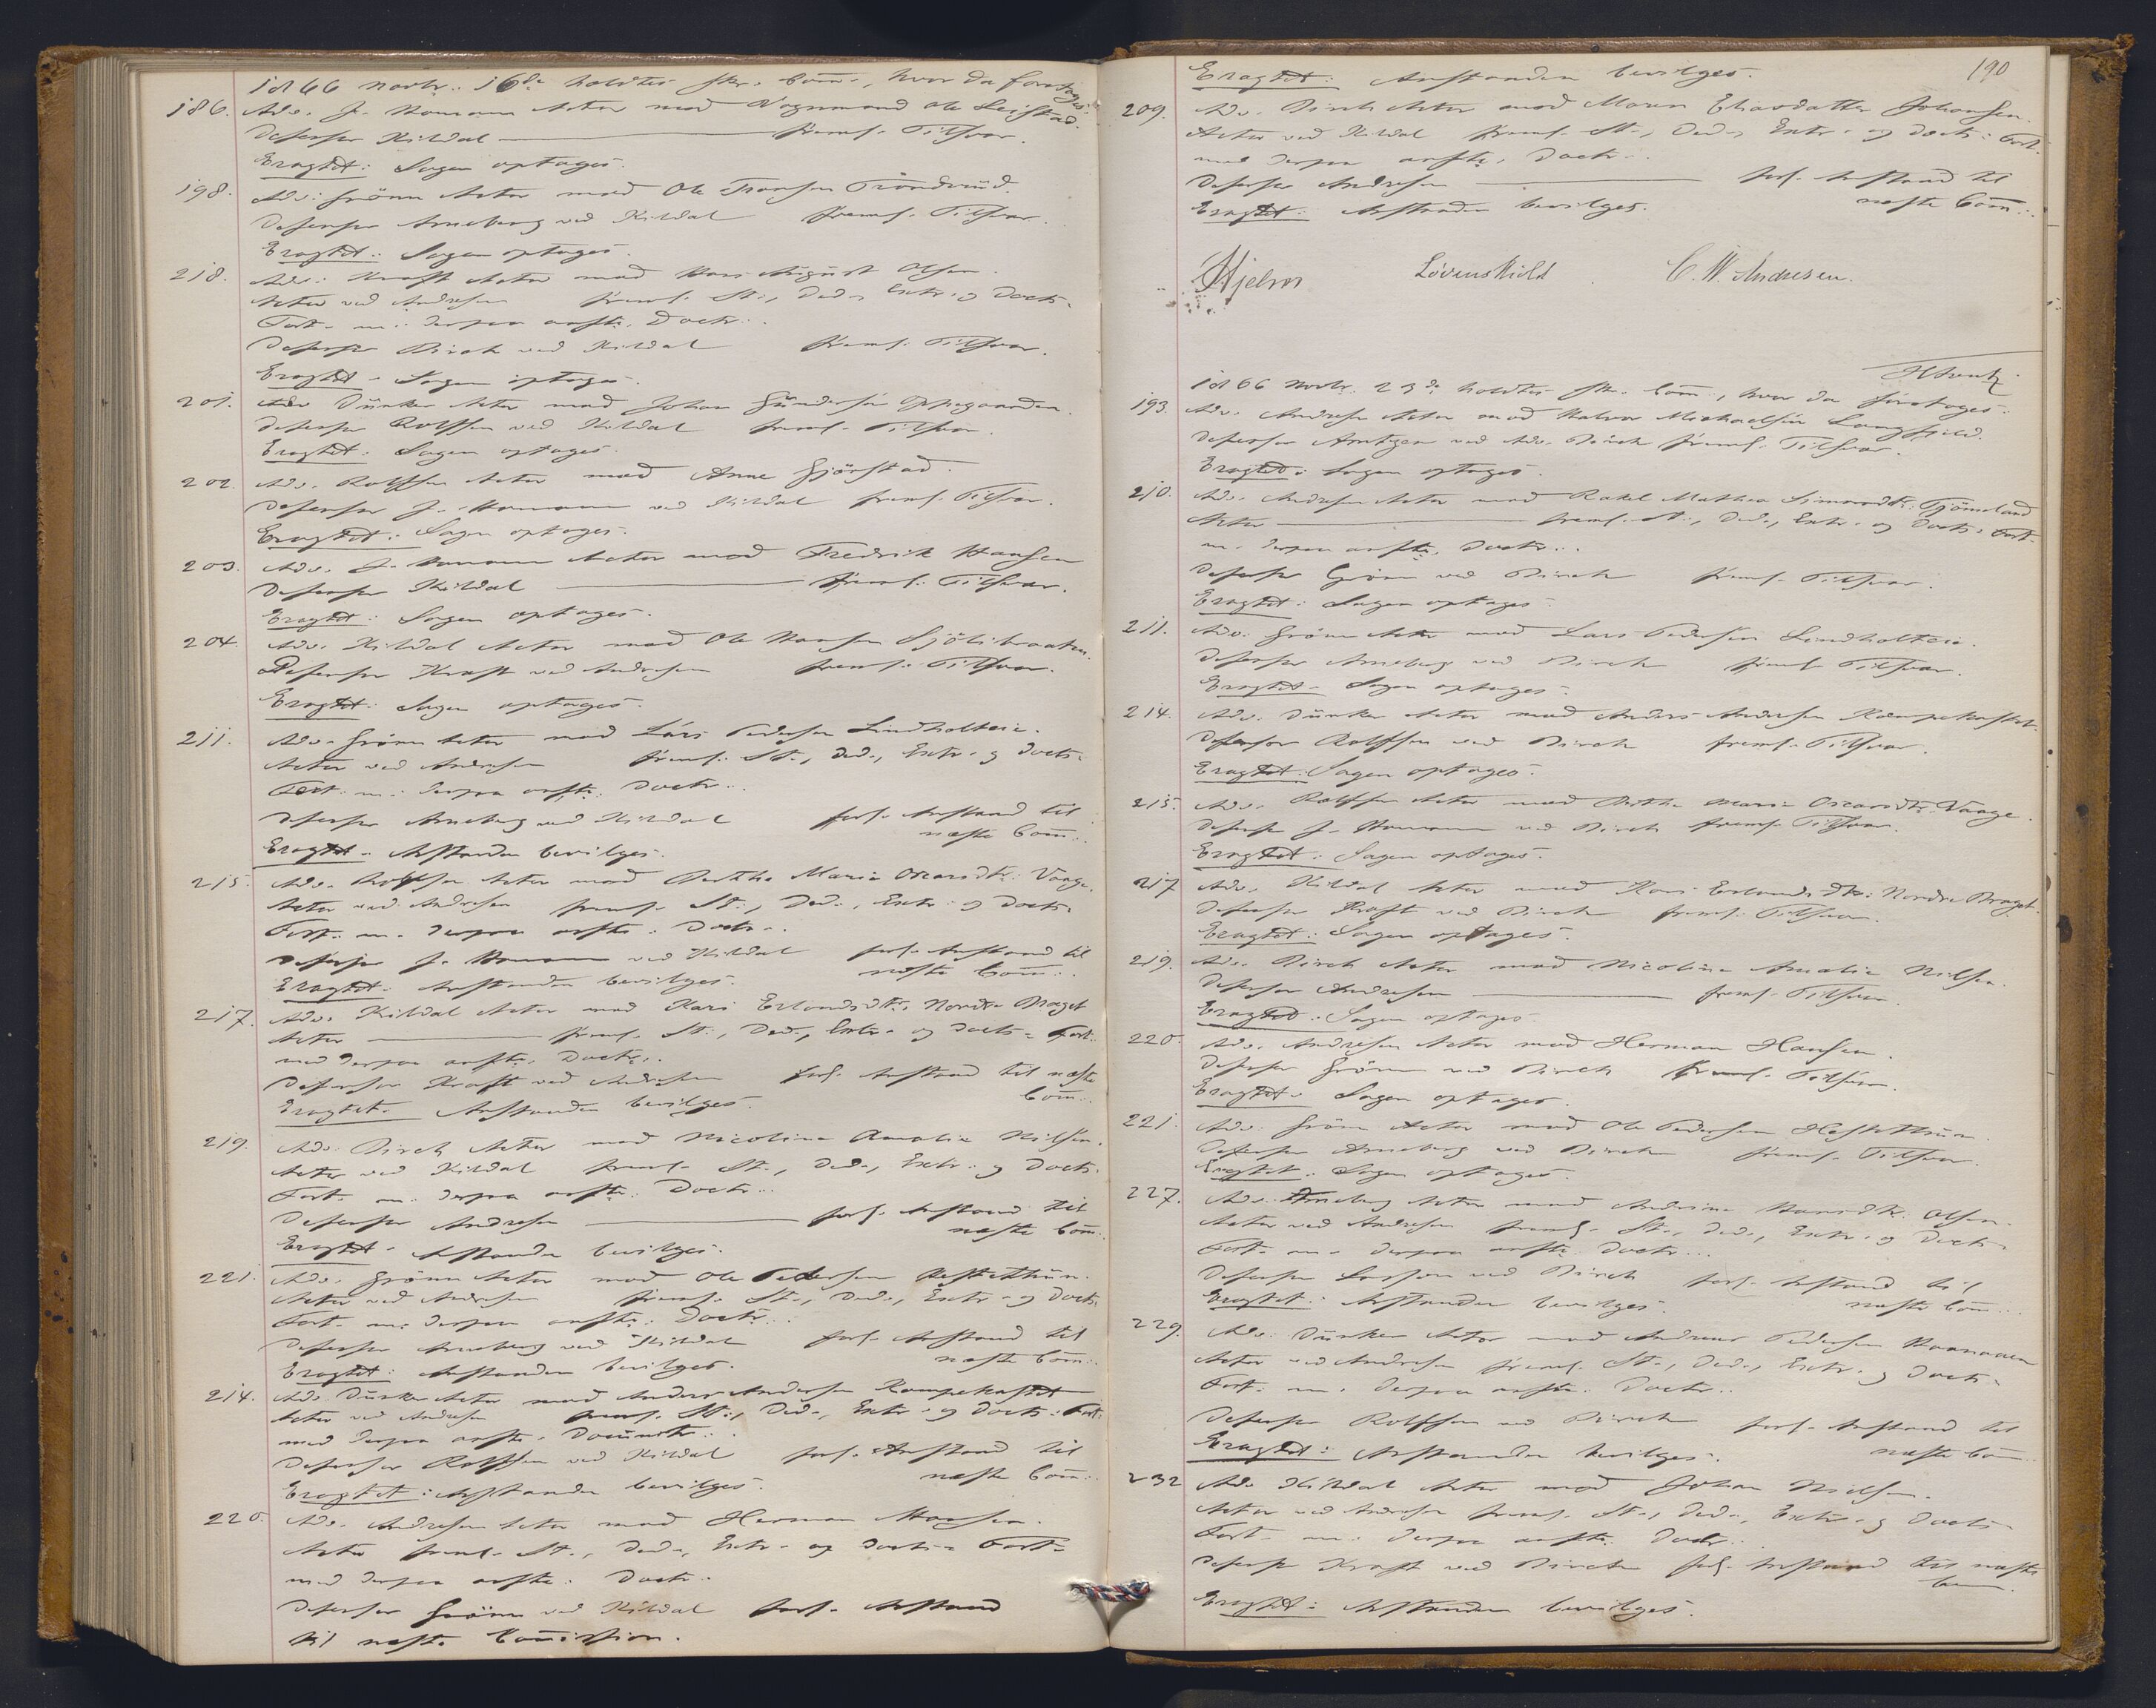 1866 Novbr. 16de holdtes skr. Com., hvor da foretoges:
186. Adv. J. Homann Actor mod Vognmand Ole Leistad.
Defensor Kildal freml. Tilsvar.
Eragtet: Sagen optages.
198. Adv. Grönn Actor mod Ole Fransen Tröndrud.
Defensor Arneberg ved Kildal freml. Tilsvar.
Eragtet: Sagen optages.
218. Adv. Kraft Actor mod Hans August Olsen.
Actor ved Andresen freml. St., Ded., Extr. og Docts.
Fort. m. derpaa anfte. Doctr.
Defensor Birch ved Kildal freml. Tilsvar.
Eragtet. Sagen optages.
201. Adv. Dunker Actor mod Johan Gundersen Oppegaarden.
Defensor Rolffsen ved Kildal freml. Tilsvar.
Eragtet: Sagen optages.
202. Adv. Rolffsen Actor mod Anne Gjörstad.
Defensor J. Homann ved Kildal freml. Tilsvar.
Eragtet: Sagen optages.
203. Adv. J. Homann Actor mod Fredrik Hansen
Defensor Kildal freml. Tilsvar.
Eragtet: Sagen optages.
204. Adv. Kildal Actor mod Ole Hansen Sjölibraaten.
Defensor Kraft ved Andresen freml. Tilsvar.
Eragtet: Sagen optages.
211. Adv. Grönn Actor mod Lars Pedersen Lindholteie.
Actor ved Andresen freml. St., Ded., Extr. og Docts.
Fort. m. derpaa anfte. Doctr.
Defensor Arneberg ved Kildal forl. Anstand til
næste Com.
Eragtet. Anstanden bevilges.
215. Adv. Rolffsen Actor mod Berthe Maria Oscarsdtr. Vaage.
Actor ved Andresen freml. St., Ded., Extr. og Docts.
Fort. m. derpaa anfte. Doctr.
Defensor J. Homann ved Kildal forl. Anstand til
næste Com.
Eragtet. Anstanden bevilges.
217. Adv. Kildal Actor mod Kari Erlandsdtr. Nordre Braget
Actor freml. St., Ded., Extr. og Docts. Fort.
med derpaa anfte. Doctr.
Defensor Kraft ved Andresen forl. Anstand til næste
Com.
Eragtet. Anstanden bevilges.
219. Adv. Birch Actor mod Nicoline Amalie Nilsen.
Actor ved Kildal freml. St., Ded., Extr. og Docts.
Fort. m. derpaa anfte. Doctr.
Defensor Andresen forl. Anstand til
næste Com.
Eragtet. Anstanden bevilges.
221. Adv. Grönn Actor mod Ole Pedersen Hestethun.
Actor ved Andresen freml. St., Ded., Extr. og Docts.
Fort. m. derpaa anfte. Doctr.
Defensor Arneberg ved Kildal forl. Anstand til
næste Com.
Eragtet: Anstanden bevilges.
214. Adv. Dunker Actor mod Anders Andersen Kampekastet
Actor ved Andresen freml. St., Ded., Extr. og Docts. Fort.
med derpaa anfte. Documtr.
Defensor Rolffsen ved Kildal forl. Anstand til
næste Com.
Eragtet: Anstanden bevilges.
220. Adv. Andresen Actor mod Herman Hansen.
Actor freml. St., Ded., Extr. og Docts. Fort.
med derpaa anfte. Doctr.
Defensor Grönn ved Kildal forl. Anstand
til næste Comission.
190
Eragtet: Anstanden bevilges.
209. Adv. Birch Actor mod Maren Eliasdatter Johansen.
Actor ved Kildal freml. St., Ded., Extr. og Docts. Fort.
med derpaa anfte. Doctr.
Defensor Andresen forl. Anstand til
næste Com.
Eragtet: Anstanden bevilges.
Hjelm Lövenskiold C. W. Andresen.
1866 Novbr. 23de holdtes skr. Com., hvor da foretoges:
193. Adv. Andresen Actor mod Halvor Michaelsen Langfjeld.
Defensor Arntzen ved Adv. Birch freml. Tilsvar.
Eragtet: Sagen optages.
210. Adv. Andresen Actor mod Rakel Mathea Simonsdtr. Tjömeland
Actor freml. St., Ded., Extr. og Docts. Fort.
m. derpaa anfte. Doctr.
Defensor Grönn ved Birch freml. Tilsvar.
Eragtet: Sagen optages.
211. Adv. Grönn Actor mod Lars Pedersen Lindholteie.
Defensor Arneberg ved Birch freml. Tilsvar.
Eragtet. Sagen optages.
214. Adv. Dunker Actor mod Anders Andersen Kampekastet.
Defensor Rolffsen ved Birch freml. Tilsvar.
Eragtet: Sagen optages.
215. Adv. Rolffsen Actor mod Berthe Maria Oscarsdtr. Vaage.
Defensor J. Homann ved Birch freml. Tilsvar.
Eragtet: Sagen optages.
217 Adv. Kildal Actor mod Kari Erlandsdtr. Nordre Braget.
Defensor Kraft ved Birch freml. Tilsvar.
Eragtet: Sagen optages.
219. Adv. Birch Actor mod Nicoline Amalie Nilsen.
Defensor Andresen freml. Tilsvar.
Eragtet: Sagen optages.
220. Adv. Andresen Actor mod Herman Hansen.
Defensor Grönn ved Birch freml. Tilsvar.
Eragtet: Sagen optages.
221. Adv. Grönn Actor mod Ole Pedersen Hestethun.
Defensor Arneberg ved Birch freml. Tilsvar.
Eragtet: Sagen optages.
227. Adv. Arneberg Actor mod Andrine Hansdtr. Olsen.
Actor ved Andresen freml. St., Ded., Extr. og Docts.
Fort. m. derpaa anfte. Doctr.
Defensor Lasson ved Birch forl. Anstand til
næste Com.
Eragtet: Anstanden bevilges.
229. Adv. Dunker Actor mod Andreas Pedersen
Actor ved Andresen freml. St., Ded., Extr. og Docts.
Fort. m. derpaa anfte. Doctr.
Defensor Rolffsen ved Birch forl. Anstand til
næste Com.
Eragtet: Anstanden bevilges.
232 Adv. Kildal Actor mod Johan Nielsen.
Actor ved Andresen freml. St., Ded., Extr. og Docts.
Fort. m. derpaa anfte. Doctr.
Defensor Kraft ved Birch forl. Anstand til næste
Com.
Eragtet: Anstanden bevilges.